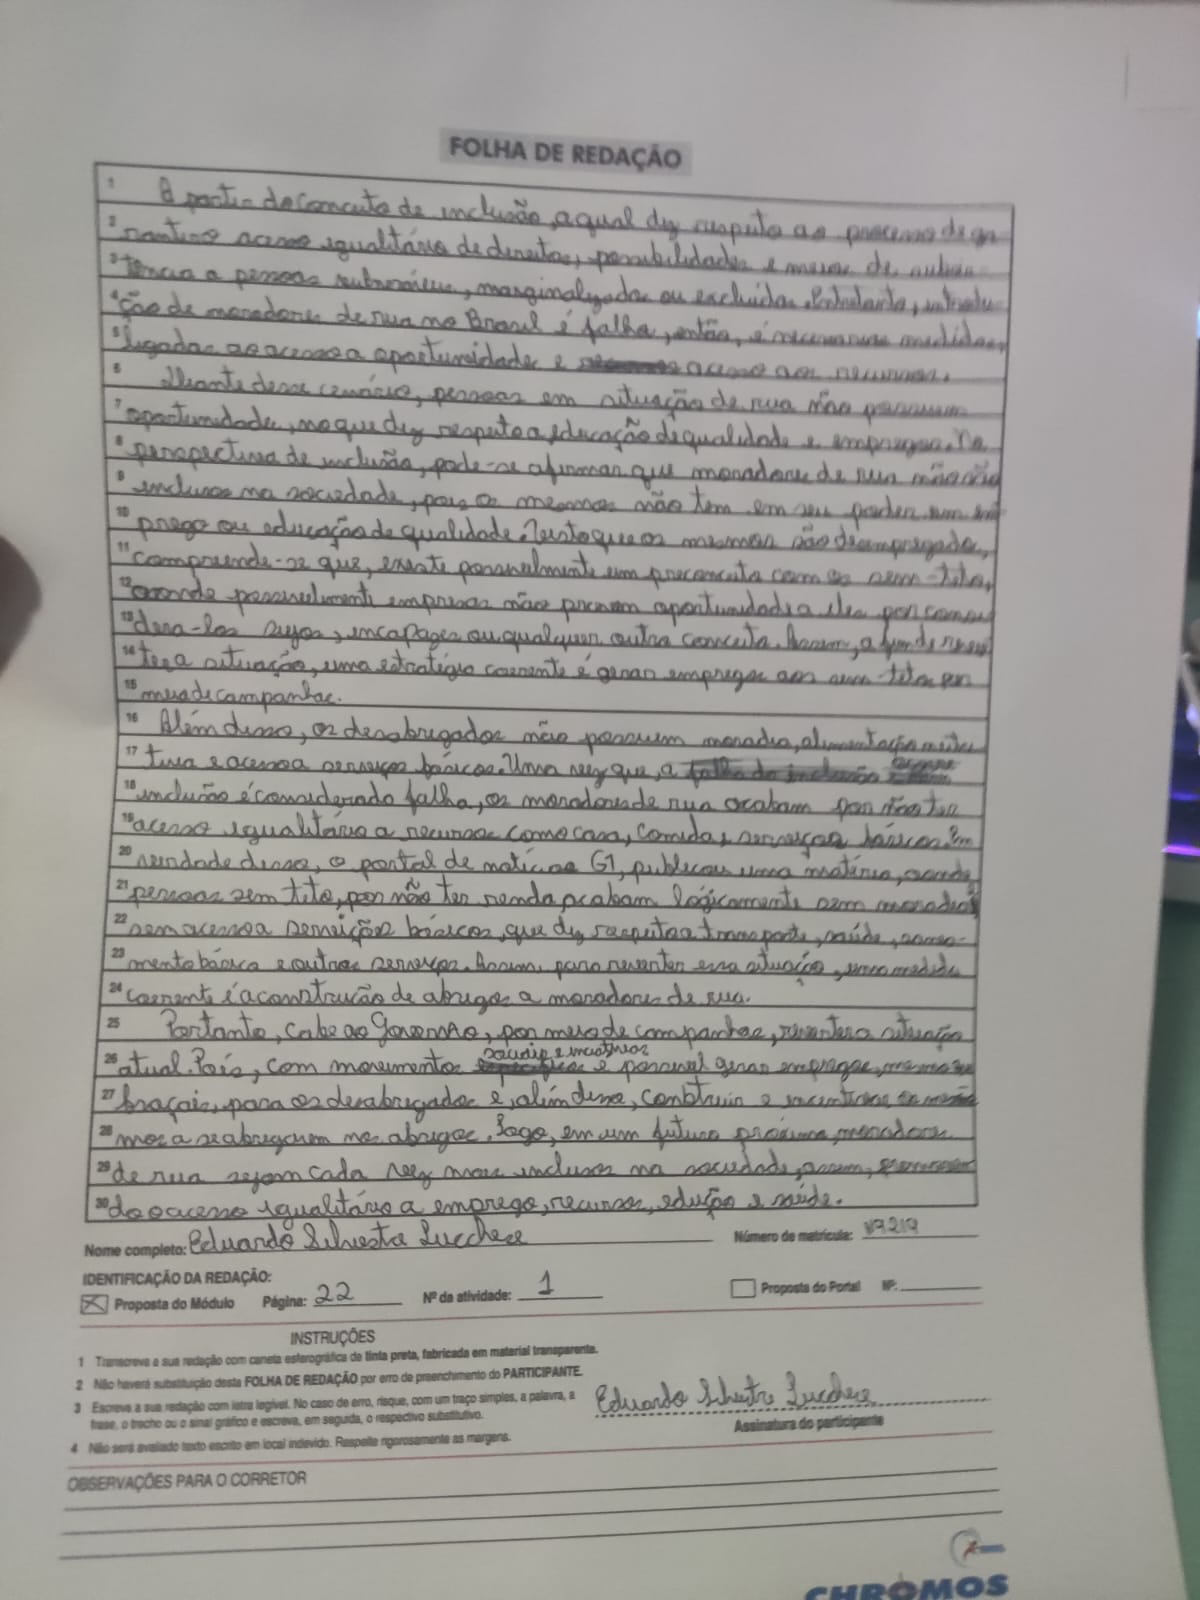 FOLHA DE REDAÇÃO
1 A partir do conceito de inclusão, a qual diz respeito ao processo de ga
2 rantir o acesso igualitário de direitos, possibilidades e meios de
3 a pessoas marginalizadas ou excluídas. Entretanto,
4 ção de moradores de rua no Brasil é falha, então, é necessários medidas,
5 ligadas ao acesso a oportunidades e acesso aos recursos.
6 Diante desse cenário, pessoas em situação de rua não possuem
7 oportunidades, no que diz respeito a educação de qualidade e empregos. Na
8 perspectiva de inclusão, pode-se afirmar que moradores de rua não são
9 inclusos na sociedade, pois os mesmos não tem em seu poder um em
10 prego ou educação de qualidade. Visto que os mesmos são desempregados,
11 compreende-se que, existe possivelmente um preconceito com os sem-teto,
12 aonde possivelmente empresas não prezam oportunidades a eles por consi
13 dera-los sujos, incapazes ou qualquer outro conceito. Assim, a fim de rever
14 ter a situação, uma estratégia coerente é gerar empregos aos sem-teto por
15 meio de campanhas.
16 Além disso, os desabrigados não possuem moradia, alimentação nutri
17 tiva e acesso a serviços básicos. Uma vez que, a
18 inclusão é considerado falha, os moradores de rua acabam por não ter
19 acesso igualitário a recursos como casa, comida e serviços básicos. Em
20 verdade disso, o portal de notícias G1, publicou uma matéria, aonde
21 pessoas sem teto, por não ter renda, acabam lógicamente sem moradia,
22 sem acesso a serviços básicos, que diz respeito a transporte, saúde, sanea-
23 mento básico e outros serviços. Assim, para reverter essa situação, uma medida
24 coerente é a construção de abrigos a moradores de rua.
25 Portanto, cabe ao Governo, por meio de campanhas, reverter a situação
26 atual. Pois, com movimentos sociais e incentivos é possível gerar empregos,
27 braçais, para os desabrigados e, além disso, construir e incentivar
28 mos a se abrigarem nos abrigos. Logo, em um futuro próximo, moradores
29 de rua sejam cada vez mais inclusos na sociedade, assim,
30 do o acesso igualitário a emprego, recursos, edução e saúde.
Nome completo: Eduardo Silvestre Lucchese Número de matrícula:
IDENTIFICAÇÃO DA REDAÇÃO:
Proposta do Módulo Página: 22 Nº da atividade: 1 Proposta do Portal Nº:
INSTRUÇÕES
1 Transcreva a sua redação com caneta esferográfica de tinta preta, fabricada em material transparente.
2 Não haverá substituição desta FOLHA DE REDAÇÃO por erro de preenchimento do PARTICIPANTE.
3 Escreva a sua redação com letra legível. No caso de erro, risque, com um traço simples, a palavra, a
frase, o trecho ou o sinal gráfico e escreva, em seguida, o respectivo substitutivo.
4 Não será avaliado texto escrito em local indevido. Respeite rigorosamente as margens.
Eduardo Silvestre Lucchese
Assinatura do participante
OBSERVAÇÕES PARA O CORRETOR
CHROMOS